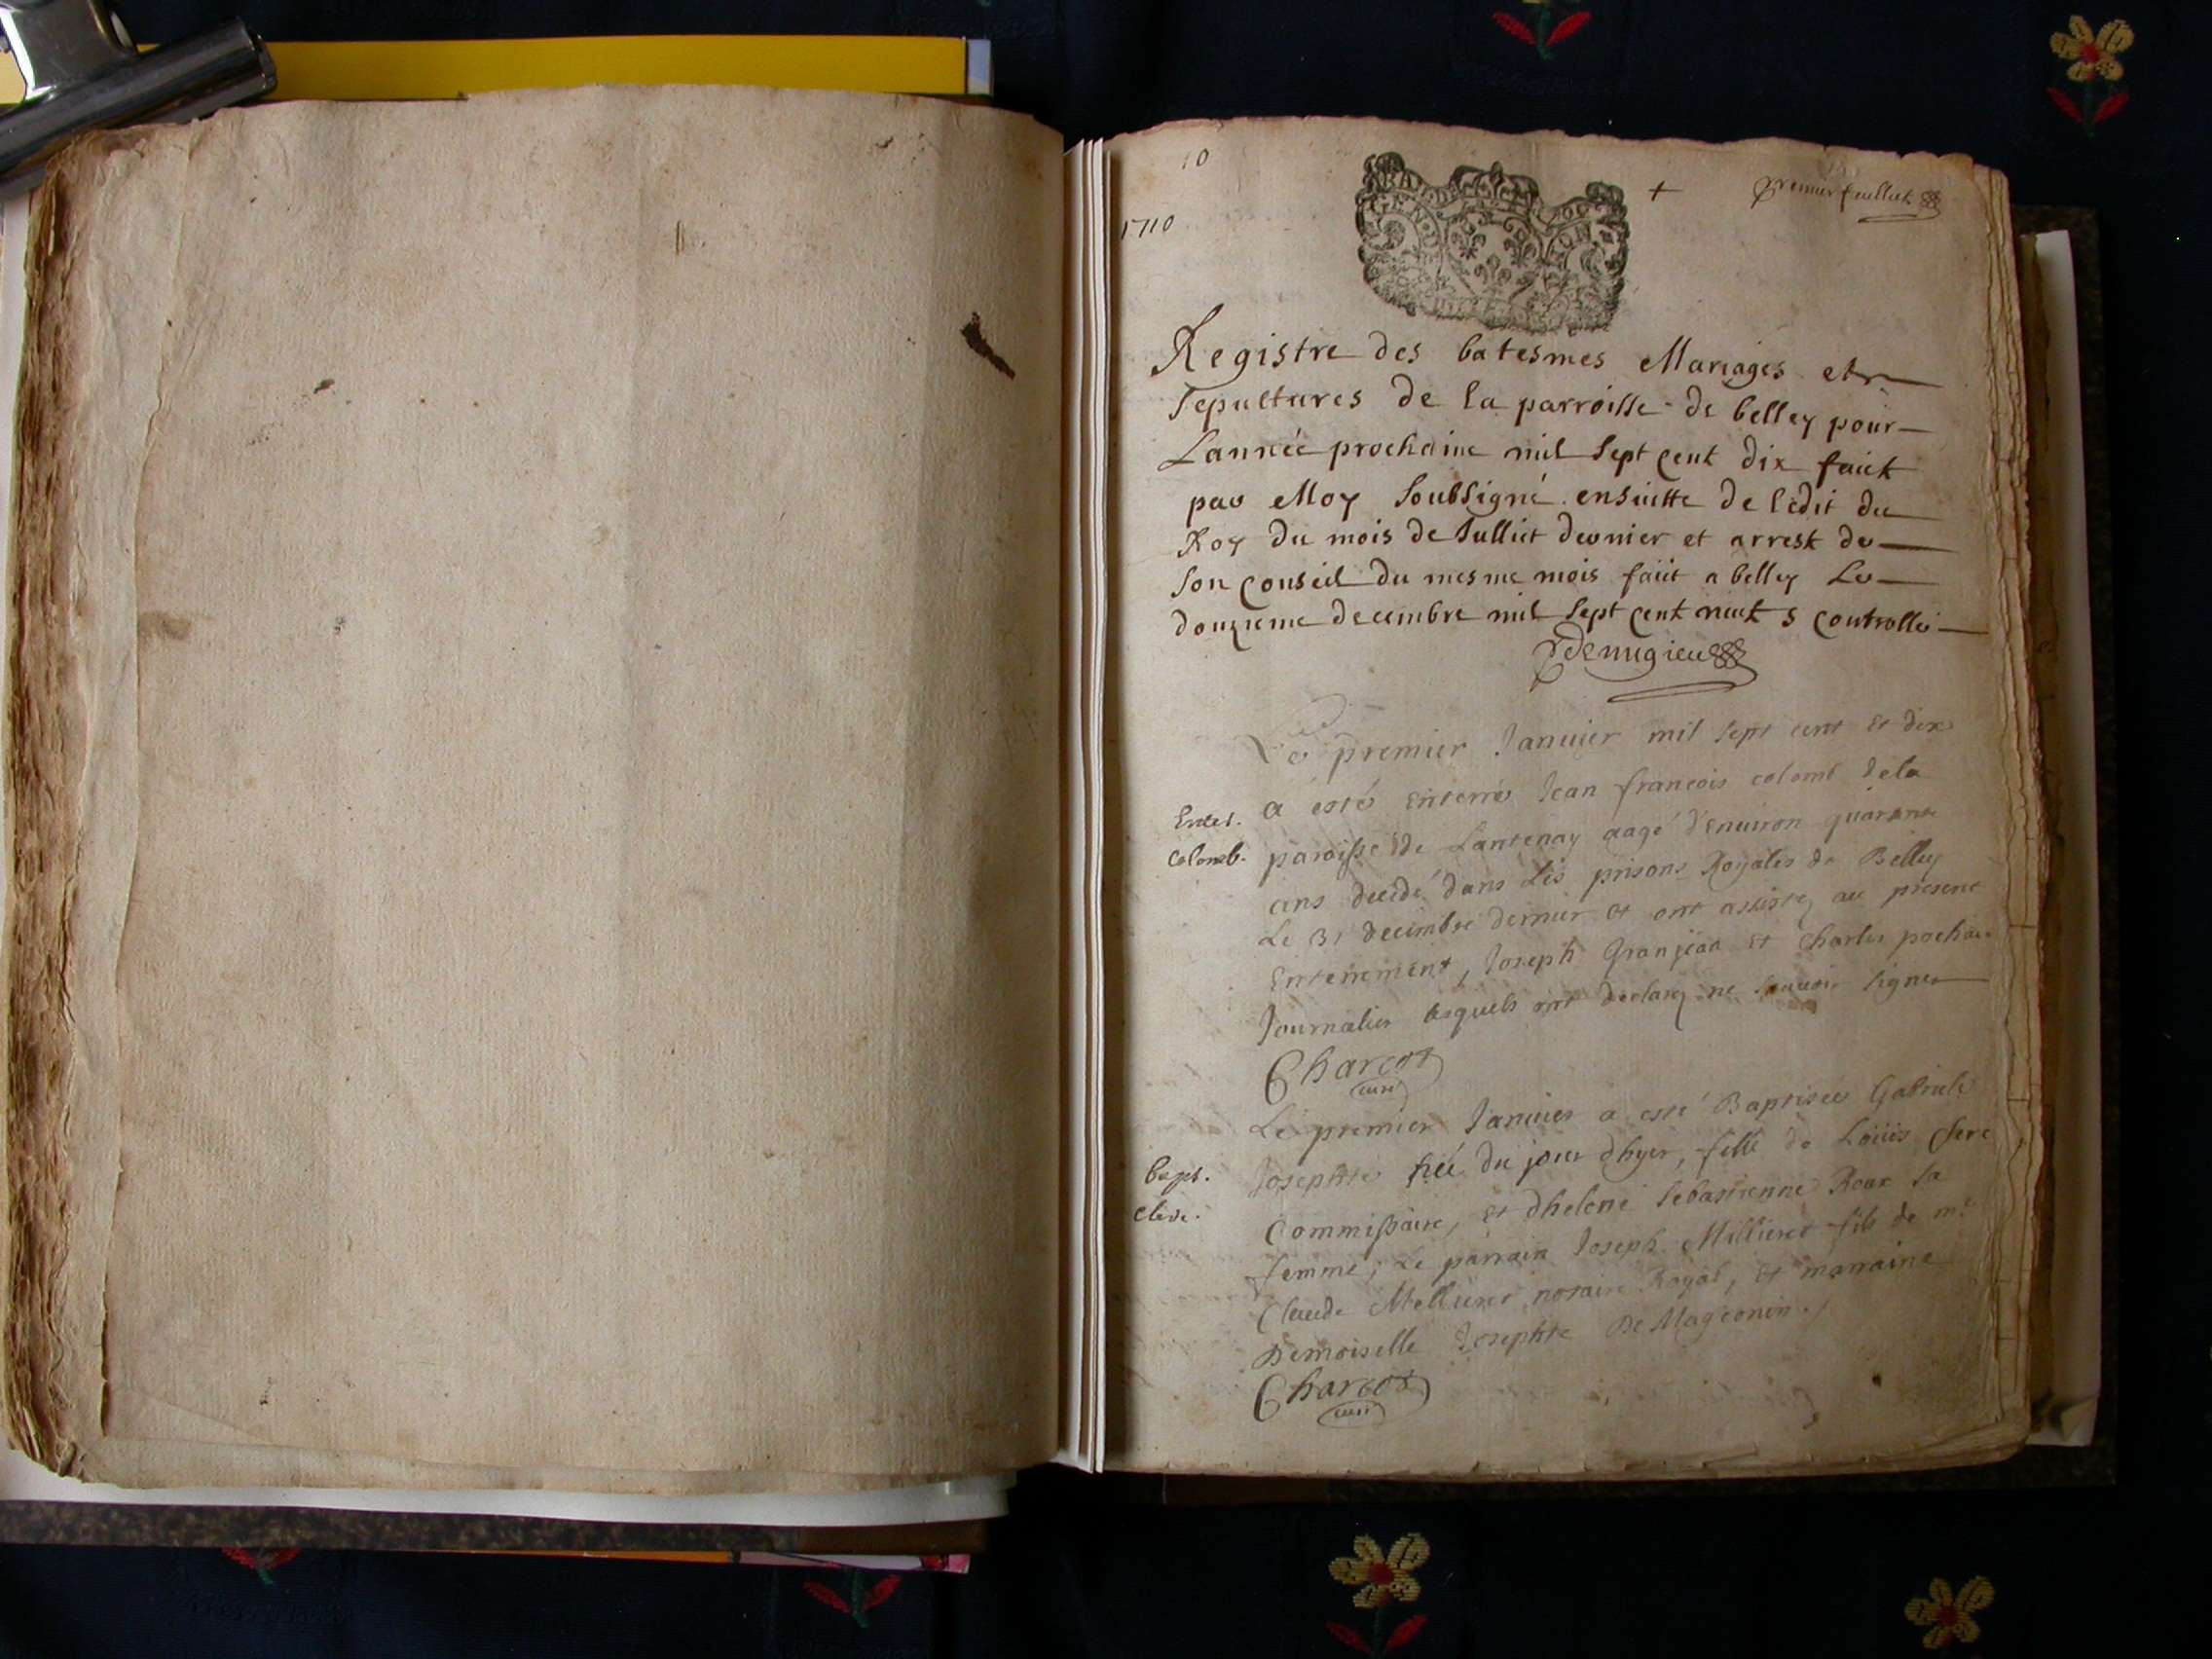 10
1710
premier feuillet
Registre des batesmes Mariages et
sepultures de la parroisse de belley pour
Lannée prochaine mil sept cent dix faict
par Moy soubsigné ensuitte de lédit du
Roy du mois de Julliet dernier et arrest de
son conseil du mesme mois faiit a belley Le
douzieme decembre mil sept cent neuf controllé
Demigieu
Le premier Januier mil sept cent et dix
a esté enterré Jean francois colomb dela
Enter.
Colomb.
paroisse de Lantenay aagé d'enuiron quarante
ans decedé dans Les prisons Royales de Belley
Le 31 decembre dernier et ont assistez au present
Enterrement, Joseph Granjean et Charles
Journalier lesquels ont declarez ne scauoir signer
Charcot
curé
Le premier Januier a esté Baptisée Gabriele
Bapt.
Josephte née du jour dhyer, fille de Loüis
Commissaire, et dhelene Sebastienne Roux sa
femme; Le parrain Joseph Millieret fils de mr
Claude Mellieret notaire Royal, et marraine
Demoiselle Josephte De Magconin.
Charcot
curé